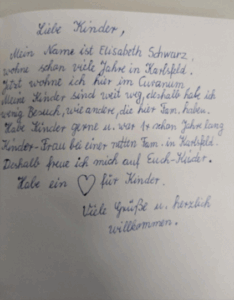 Liebe Kinder,
Mein Name ist Elisabeth Schwarz.
wohne schon viele Jahre in Karlsfeld.
Jetzt wohne ich hier im Curanum.
Meine Kinder sind weit weg, deshalb habe ich
wenig Besuch, wie andere, die hier Fam. haben.
Habe Kinder gerne u. war 1+ schon Jahre lang
Kinder-Frau bei einer netten Fam. in Karlsfeld.
Deshalb freue ich mich auf Euch-Kinder.
Habe ein ♡ für Kinder.
Viele Grüße u. herzlich
willkommen.